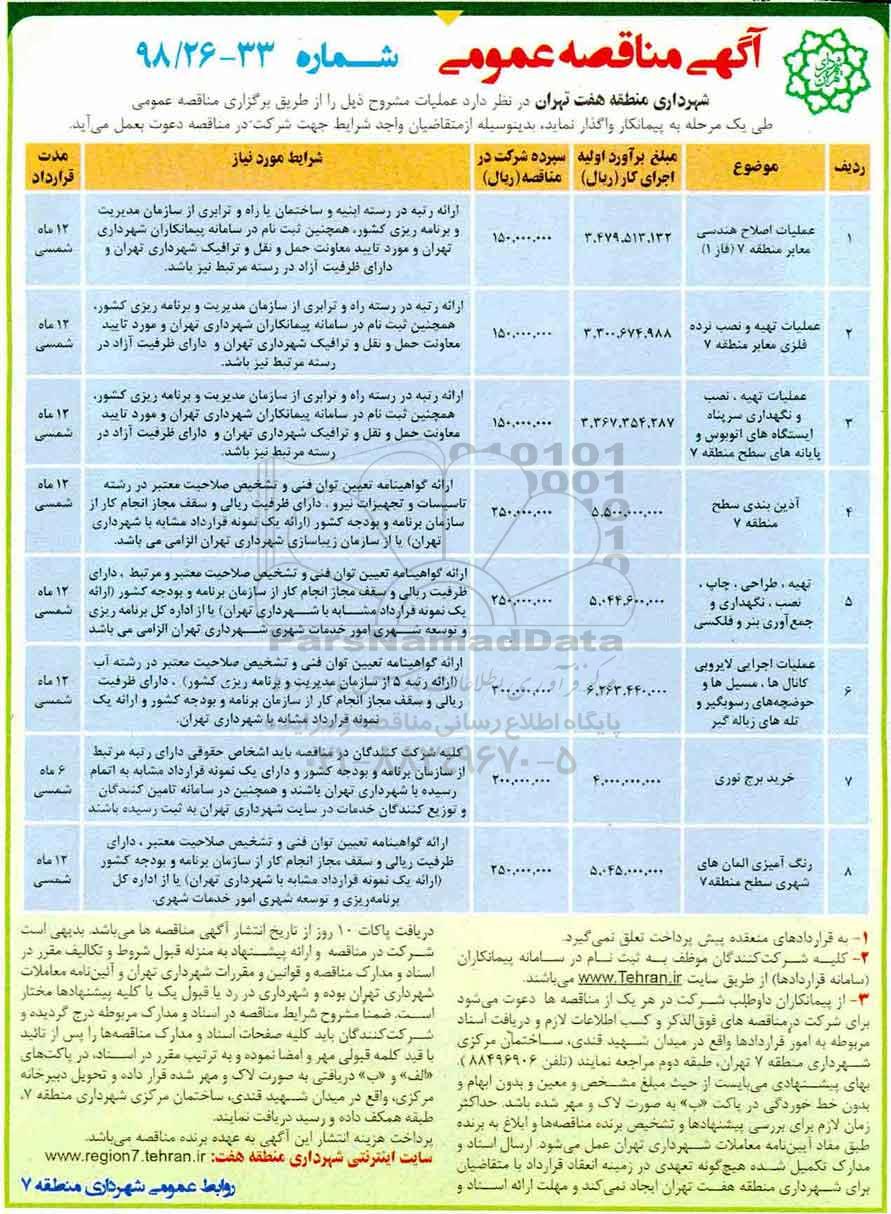 آگهی مناقصه عمومی شماره ۳۳-۹۸/۲۶
شهرداری منطقه هفت تهران در نظر دارد عملیات مشروح ذیل را از طریق برگزاری مناقصه عمومی
طی یک مرحله به پیمانکار واگذار نماید، بدینوسیله ازمتقاضیان واجد شرایط جهت شرکت در مناقصه دعوت بعمل می‌آید.
ردیف
موضوع
مبلغ برآورد اولیه
اجرای کار (ریال)
سپرده شرکت در
مناقصه (ریال)
شرایط مورد نیاز
مدت
قرارداد
۱
عملیات اصلاح هندسی
معابر منطقه ۷ (فاز ۱)
۳.۴۷۹.۵۱۳.۱۳۲
۱۵۰.۰۰۰.۰۰۰
ارائه رتبه در رسته ابنیه و ساختمان یا راه و ترابری از سازمان مدیریت
و برنامه ریزی کشور، همچنین ثبت نام در سامانه پیمانکاران شهرداری
تهران و مورد تایید معاونت حمل و نقل و ترافیک شهرداری تهران و
دارای ظرفیت آزاد در رسته مرتبط نیز باشد.
۱۲ ماه
شمسی
۲
عملیات تهیه و نصب نرده
فلزی معابر منطقه ۷
۳.۳۰۰.۶۷۴.۹۸۸
۱۵۰.۰۰۰.۰۰۰
ارائه رتبه در رسته راه و ترابری از سازمان مدیریت و برنامه ریزی کشور،
همچنین ثبت نام در سامانه پیمانکاران شهرداری تهران و مورد تایید
معاونت حمل و نقل و ترافیک شهرداری تهران و دارای ظرفیت آزاد در
رسته مرتبط نیز باشد.
۱۲ ماه
شمسی
۳
عملیات تهیه ، نصب
و نگهداری سرپناه
ایستگاه های اتوبوس و
پایانه های سطح منطقه ۷
۳.۳۶۷.۳۵۴.۲۸۷
۱۵۰.۰۰۰.۰۰۰
ارائه رتبه در رسته راه و ترابری از سازمان مدیریت و برنامه ریزی کشور،
همچنین ثبت نام در سامانه پیمانکاران شهرداری تهران و مورد تایید
معاونت حمل و نقل و ترافیک شهرداری تهران و دارای ظرفیت آزاد در
رسته مرتبط نیز باشد.
۱۲ ماه
شمسی
۴
آذین بندی سطح
منطقه ۷
۵.۵۰۰.۰۰۰.۰۰۰
۲۵۰.۰۰۰.۰۰۰
ارائه گواهینامه تعیین توان فنی و تشخیص صلاحیت معتبر در رشته
تاسیسات و تجهیزات نیرو ، دارای ظرفیت ریالی و سقف مجاز انجام کار از
سازمان برنامه و بودجه کشور (ارائه یک نمونه قرارداد مشابه با شهرداری
تهران) یا از سازمان زیباسازی شهرداری تهران الزامی می باشد.
۱۲ ماه
شمسی
۵
تهیه ، طراحی ، چاپ ،
نصب ، نگهداری و
جمع‌آوری بنر و فلکسی
۵.۰۴۴.۶۰۰.۰۰۰
۲۵۰.۰۰۰.۰۰۰
ارائه گواهینامه تعیین توان فنی و تشخیص صلاحیت معتبر و مرتبط ، دارای
ظرفیت ریالی و سقف مجاز انجام کار از سازمان برنامه و بودجه کشور (ارائه
یک نمونه قرارداد مشابه با شهرداری تهران) یا از اداره کل برنامه ریزی
و توسعه شهری امور خدمات شهری شهرداری تهران الزامی می باشد
۱۲ ماه
شمسی
۶
عملیات اجرایی لایروبی
کانال ها ، مسیل ها و
حوضچه‌های رسوبگیر و
تله های زباله گیر
۶.۲۶۳.۴۴۰.۰۰۰
۳۰۰.۰۰۰.۰۰۰
ارائه گواهینامه تعیین توان فنی و تشخیص صلاحیت معتبر در رشته آب
(ارائه رتبه ۵ از سازمان مدیریت و برنامه ریزی کشور) ، دارای ظرفیت
ریالی و سقف مجاز انجام کار از سازمان برنامه و بودجه کشور و ارائه یک
نمونه قرارداد مشابه با شهرداری تهران.
۱۲ ماه
شمسی
۷
خرید برج نوری
۴.۰۰۰.۰۰۰.۰۰۰
۲۰۰.۰۰۰.۰۰۰
کلیه شرکت کنندگان در مناقصه باید اشخاص حقوقی دارای رتبه مرتبط
از سازمان برنامه و بودجه کشور و دارای یک نمونه قرارداد مشابه به اتمام
رسیده با شهرداری تهران باشند و همچنین در سامانه تامین کنندگان
و توزیع کنندگان خدمات در سایت شهرداری تهران به ثبت رسیده باشند
۶ ماه
شمسی
۸
رنگ آمیزی المان های
شهری سطح منطقه۷
۵.۰۴۵.۰۰۰.۰۰۰
۲۵۰.۰۰۰.۰۰۰
ارائه گواهینامه تعیین توان فنی و تشخیص صلاحیت معتبر ، دارای
ظرفیت ریالی و سقف مجاز انجام کار از سازمان برنامه و بودجه کشور
(ارائه یک نمونه قرارداد مشابه با شهرداری تهران) یا از اداره کل
برنامه‌ریزی و توسعه شهری امور خدمات شهری.
۱۲ ماه
شمسی
۱- به قراردادهای منعقده پیش پرداخت تعلق نمی‌گیرد.
۲- کلیه شرکت‌کنندگان موظف به ثبت نام در سامانه پیمانکاران
(سامانه قراردادها) از طریق سایت www.Tehran.ir می‌باشند.
۳- از پیمانکاران داوطلب شرکت در هر یک از مناقصه ها دعوت می‌شود
برای شرکت درمناقصه های فوق‌الذکر و کسب اطلاعات لازم و دریافت اسناد
مربوطه به امور قراردادها واقع در میدان شهید قندی، ساختمان مرکزی
شهرداری منطقه ۷ تهران، طبقه دوم مراجعه نمایند (تلفن ۸۸۴۹۶۹۰۶).
بهای پیشنهادی می‌بایست از حیث مبلغ مشخص و معین و بدون ابهام و
بدون خط خوردگی در پاکت «ب» به صورت لاک و مهر شده باشد. حداکثر
زمان لازم برای بررسی پیشنهادها و تشخیص برنده مناقصه‌ها و ابلاغ به برنده
طبق مفاد آیین‌نامه معاملات شهرداری تهران عمل می‌شود. ارسال اسناد و
مدارک تکمیل شده هیچ‌گونه تعهدی در زمینه انعقاد قرارداد با متقاضیان
برای شهرداری منطقه هفت تهران ایجاد نمی‌کند و مهلت ارائه اسناد و
دریافت پاکات ۱۰ روز از تاریخ انتشار آگهی مناقصه ها می‌باشد. بدیهی است
شرکت در مناقصه و ارائه پیشنهاد به منزله قبول شروط و تکالیف مقرر در
اسناد و مدارک مناقصه و قوانین و مقررات شهرداری تهران و آئین‌نامه معاملات
شهرداری تهران بوده و شهرداری در رد یا قبول یک یا کلیه پیشنهادها مختار
است. ضمنا مشروح شرایط مناقصه در اسناد و مدارک مربوطه درج گردیده و
شرکت‌کنندگان باید کلیه صفحات اسناد و مدارک مناقصه‌ها را پس از تائید
با قید کلمه قبولی مهر و امضا نموده و به ترتیب مقرر در اسناد، در پاکت‌های
«الف» و «ب» دریافتی به صورت لاک و مهر شده قرار داده و تحویل دبیرخانه
مرکزی، واقع در میدان شهید قندی، ساختمان مرکزی شهرداری منطقه ۷،
طبقه همکف داده و رسید دریافت نمایند.
پرداخت هزینه انتشار این آگهی به عهده برنده مناقصه می‌باشد.
سایت اینترنتی شهرداری منطقه هفت: www.region7.tehran.ir
روابط عمومی شهرداری منطقه ۷
ParsNamadData
پایگاه اطلاع رسانی مناقصه و مزایده
۰۲۱-۸۸۳۴۹۶۷۰-۵